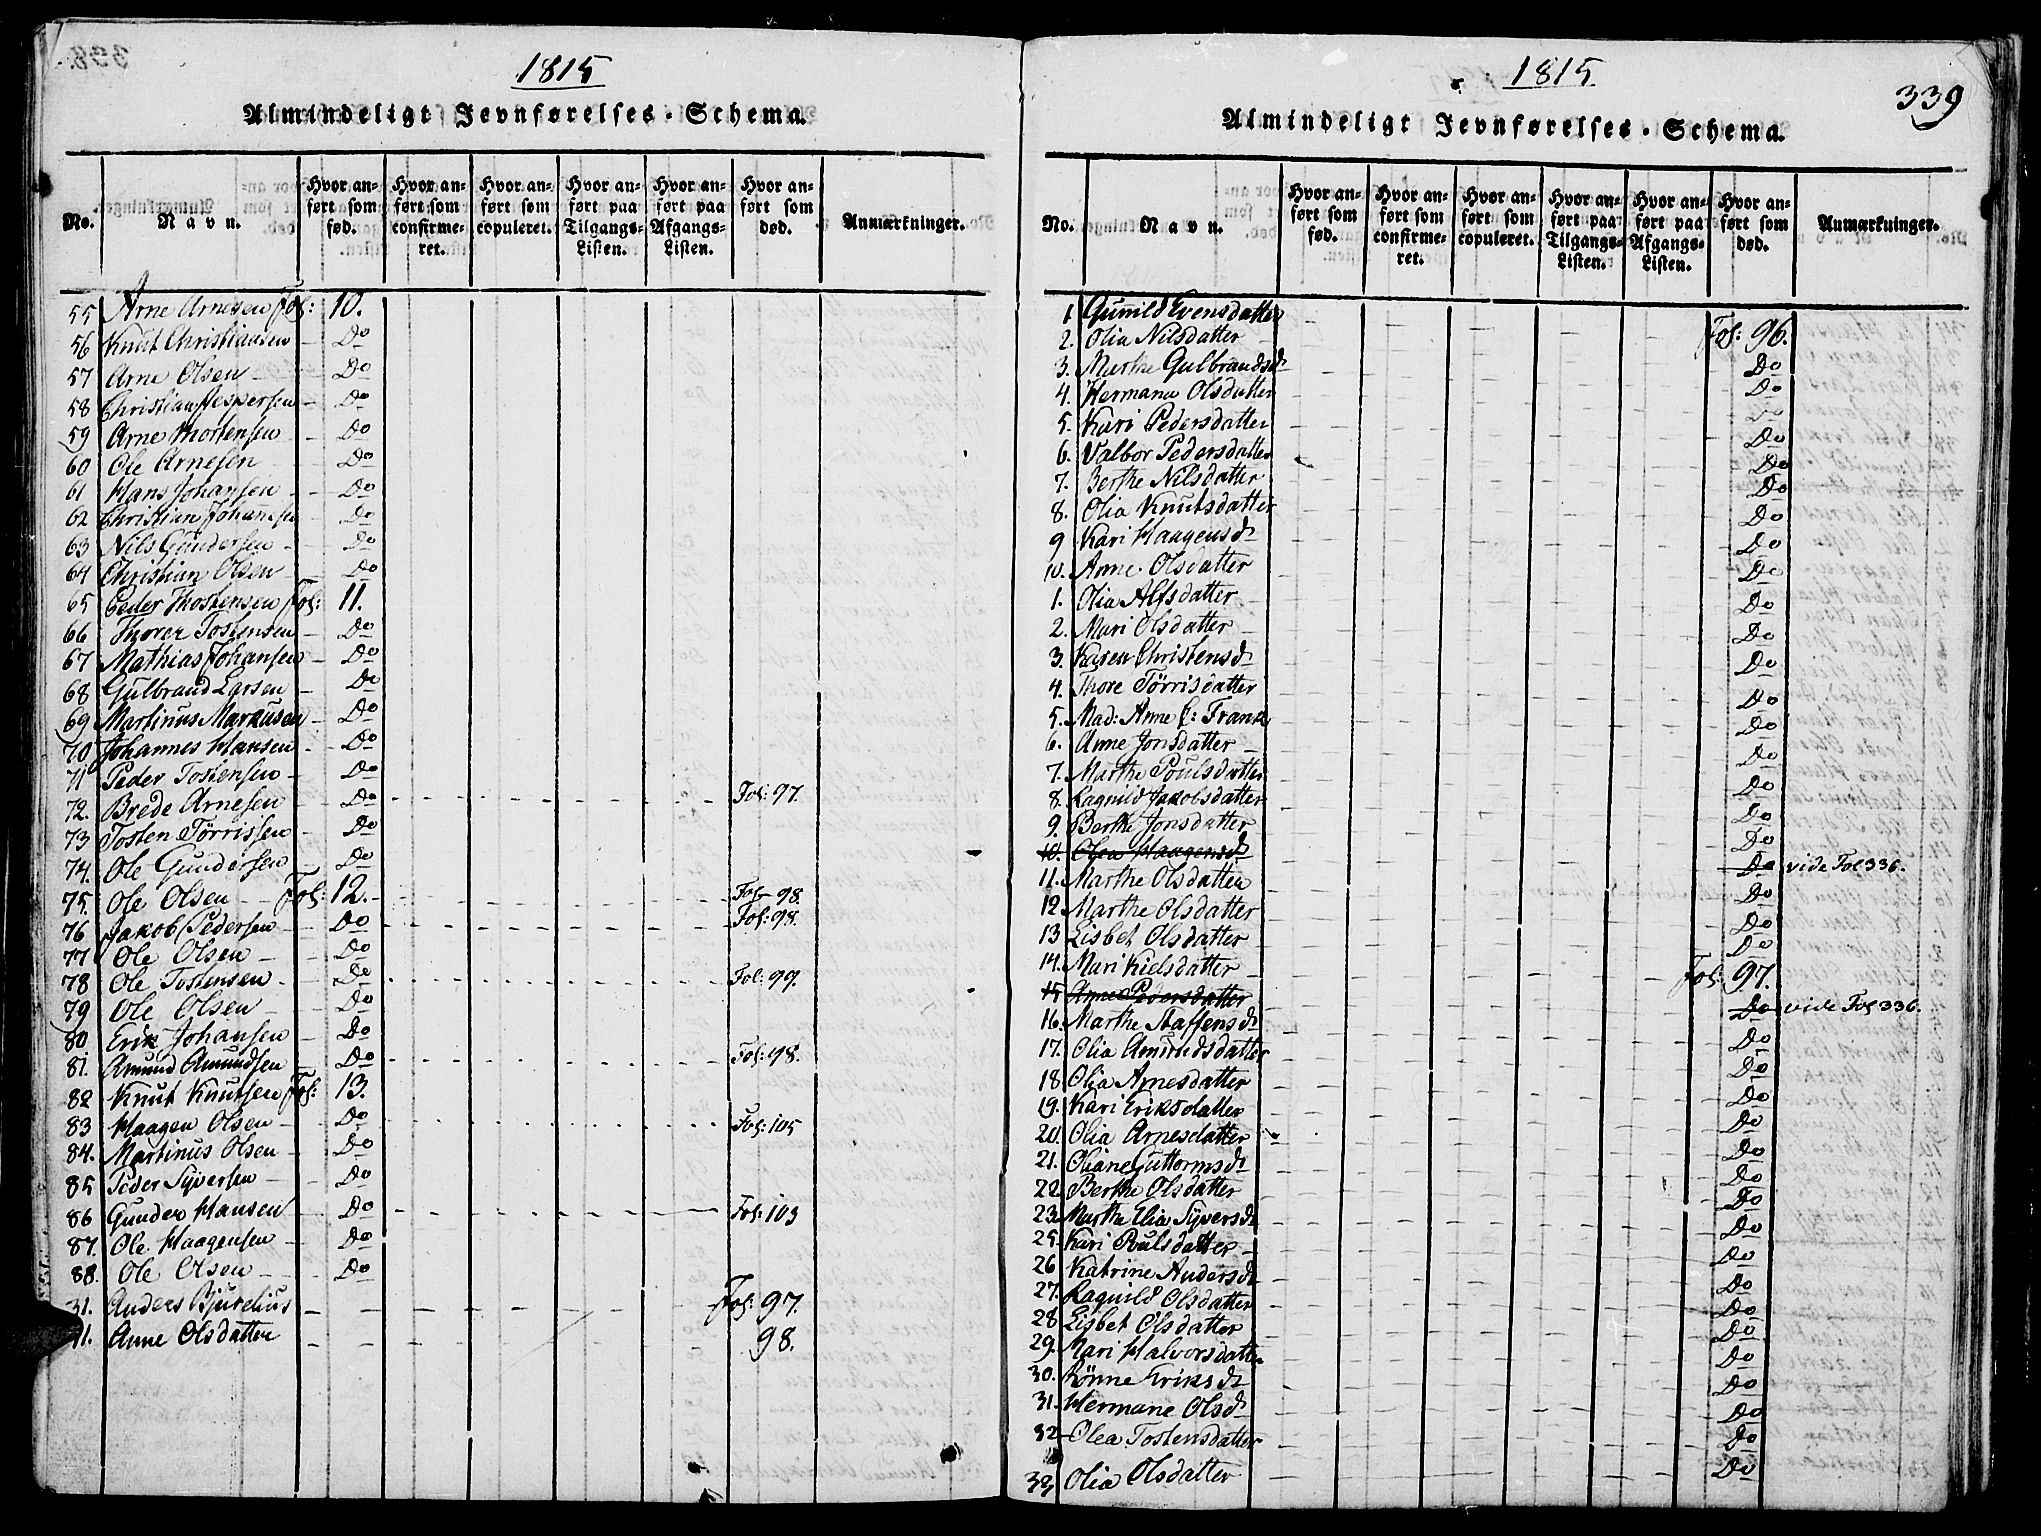 338.
1815
Almindeligt Jevnførelses-Schema.
No. Navn. Hvor anført som fød. Hvor anført som confirmeret. Hvor anført som copuleret. Hvor anført paa Tilgangs-Listen. Hvor anført paa Afgangs-Listen. Hvor anført som død. Anmærkninger.
55 Arne Arnesen Fol: 10.
56 Knut Christiansen Do
57 Arne Olsen Do
58 Christian Jespersen Do
59 Arne Mortensen Do
60 Ole Arnesen Do
61 Hans Johansen Do
62 Christian Johansen Do
63 Nils Gundersen Do
64 Christian Olsen Do
65 Peder Thostensen Fol: 11.
66 Thorer Tostensen Do
67 Mathias Johansen Do
68 Gulbrand Larsen Do
69 Martinus Markusen Do
70 Johannes Hansen Do
71 Peder Tostensen Do
72. Brede Arnesen Do Fol: 97.
73 Tosten Tørrissen Do
74. Ole Gundersen Do
75. Ole Olsen Fol: 12. Fol 98.
76 Jakob Pedersen Do Fol: 98.
77 Ole Olsen Do
78 Ole Tostensen Do Fol: 99.
79 Ole Olsen Do
80 Erik Johansen Do
81. Amund Amundsen Do Fol: 98.
82 Knut Knutsen Fol: 13.
83 Haagen Olsen Do Fol: 105
84. Martinus Olsen Do
85 Peder Syversen Do
86 Gunder Hansen Do Fol: 103
87. Ole Haagensen Do
88. Ole Olsen Do
31. Anders Bjurelius Fol: 97.
41. Anne Olsdatter 98.
1815.
339
Almindeligt Jevnførelses-Schema.
No. Navn. Hvor anført som fød. Hvor anført som confirmeret. Hvor anført som copuleret. Hvor anført paa Tilgangs-Listen. Hvor anført paa Afgangs-Listen. Hvor anført som død. Anmærkninger.
1 Gunild Evensdatter Fol: 96.
2. Olia Nilsdatter Do
3. Marthe Gulbrandsd Do
4. Hermana Olsdatter Do
5. Kari Pedersdatter Do
6. Valbor Pedersdatter Do
7. Berthe Nilsdatter Do
8. Olia Knutsdatter Do
9 Kari Haagensd Do
10. Anne Olsdatter Do
1. Olia Alfsdatter Do
2. Mari Olsdatter Do
3. Karen Christensd Do
4. Thore Tørrisdatter Do
5. Mad: Anne C: Frank Do
6. Anne Jonsdatter Do
7. Marthe Poulsdatter Do
8. Ragnild Jakobsdatter Do
9. Berthe Jonsdatter Do
10. Olea Haagensd Do vide Fol 336.
11. Marthe Olsdatter Do
12 Marthe Olsdatter Do
13 Lisbet Olsdatter Do
14. Mari Kielsdatter Fol: 97.
15 Anne Pedersdatter Do vide Fol 336.
16. Marthe Staffensd Do
17. Olia Amundsdatter Do
18 Olia Arnesdatter Do
19. Kari Eriksdatter Do
20. Olia Arnesdatter Do
21. Oliane Guttormsd Do
22. Berthe Olsdatter Do
23. Marthe Elia Syversd Do
25. Kari Poulsdatter Do
26 Katrine Andersd Do
27. Ragnild Olsdatter Do
28 Lisbet Olsdatter Do
29. Mari Halvorsdatter Do
30. Rønne Eriksd Do
31. Hermane Olsd Do
32 Olea Tostensdatter Do
33 Olia Olsdatter Do